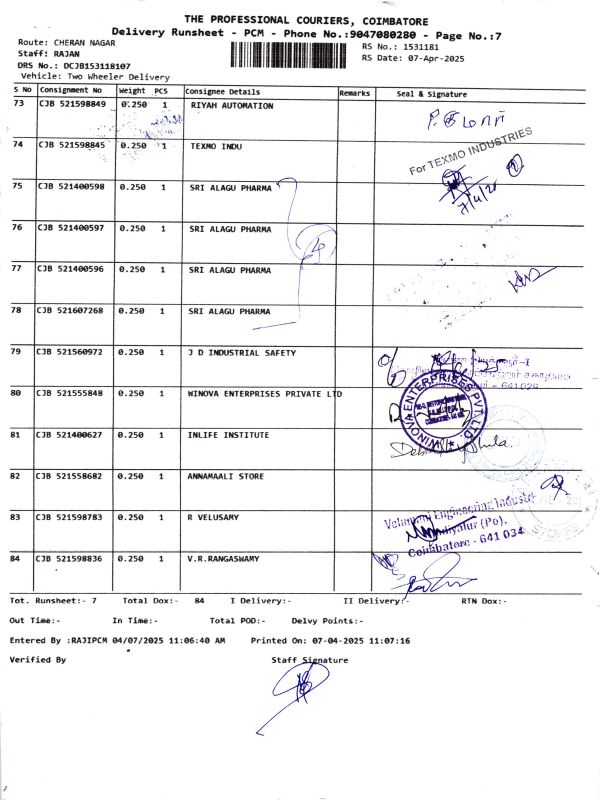 THE PROFESSIONAL COURIERS, COIMBATORE
Delivery Runsheet - PCM - Phone No.:9047080280 - Page No.:7
Route: CHERAN NAGAR
Staff: RAJAN
DRS No.: DCJB153118107
Vehicle: Two Wheeler Delivery
RS No.: 1531181
RS Date: 07-Apr-2025
S No Consignment No Weight PCS Consignee Details Remarks Seal & Signature
73 CJB 521598849 0.250 1 RIYAH AUTOMATION
74 CJB 521598845 0.250 1 TEXMO INDU
For TEXMO INDUSTRIES
75 CJB 521400598 0.250 1 SRI ALAGU PHARMA
76 CJB 521400597 0.250 1 SRI ALAGU PHARMA
77 CJB 521400596 0.250 1 SRI ALAGU PHARMA
78 CJB 521607268 0.250 1 SRI ALAGU PHARMA
79 CJB 521560972 0.250 1 J D INDUSTRIAL SAFETY
641029
80 CJB 521555848 0.250 1 WINOVA ENTERPRISES PRIVATE LTD
WINOVA ENTERPRISES PVT. LTD
81 CJB 521400627 0.250 1 INLIFE INSTITUTE
82 CJB 521558682 0.250 1 ANNAMAALI STORE
83 CJB 521598783 0.250 1 R VELUSAMY
Velumani Engineering Industri
(Po),
Coimbatore - 641 034
STORES
84 CJB 521598836 0.250 1 V.R.RANGASWAMY
Tot. Runsheet:- 7 Total Dox:- 84 I Delivery:- II Delivery:- RTN Dox:-
Out Time:- In Time:- Total POD:- Delvy Points:-
Entered By :RAJIPCM 04/07/2025 11:06:40 AM Printed On: 07-04-2025 11:07:16
Verified By Staff Signature